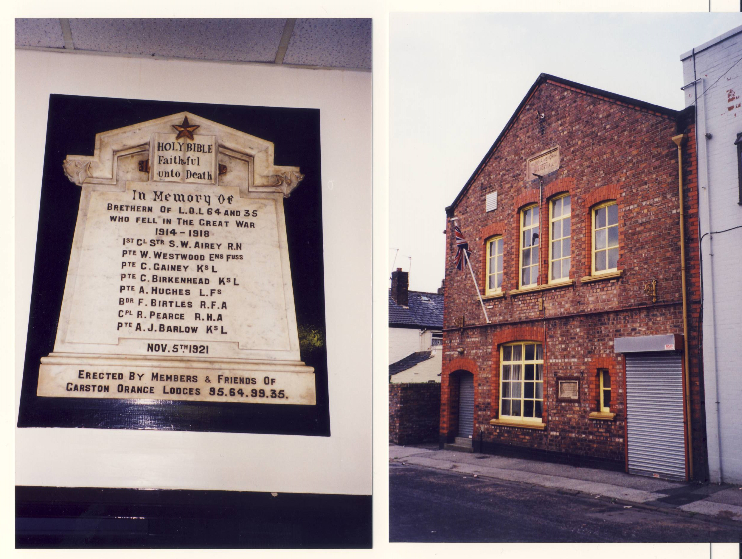 HOLY BIBLE
Faithful
unto Death
In Memory Of
BRETHERN OF L.O.L 64 AND 35
WHO FELL IN THE GREAT WAR
1914-1918
1ST CL STR S.W. AIREY R.N
PTE W. WESTWOOD ENS FUSS
PTE C. GAINEY KS L
PTE C. BIRKENHEAD KS L
PTE A. HUGHES L.FS
BDR F. BIRTLES R.F.A
CPL R. PEARCE R.H.A
PTE A.J. BARLOW KS L
NOV. 5TH 1921
ERECTED BY MEMBERS & FRIENDS OF
GARSTON ORANGE LODGES 95.64.99.35.